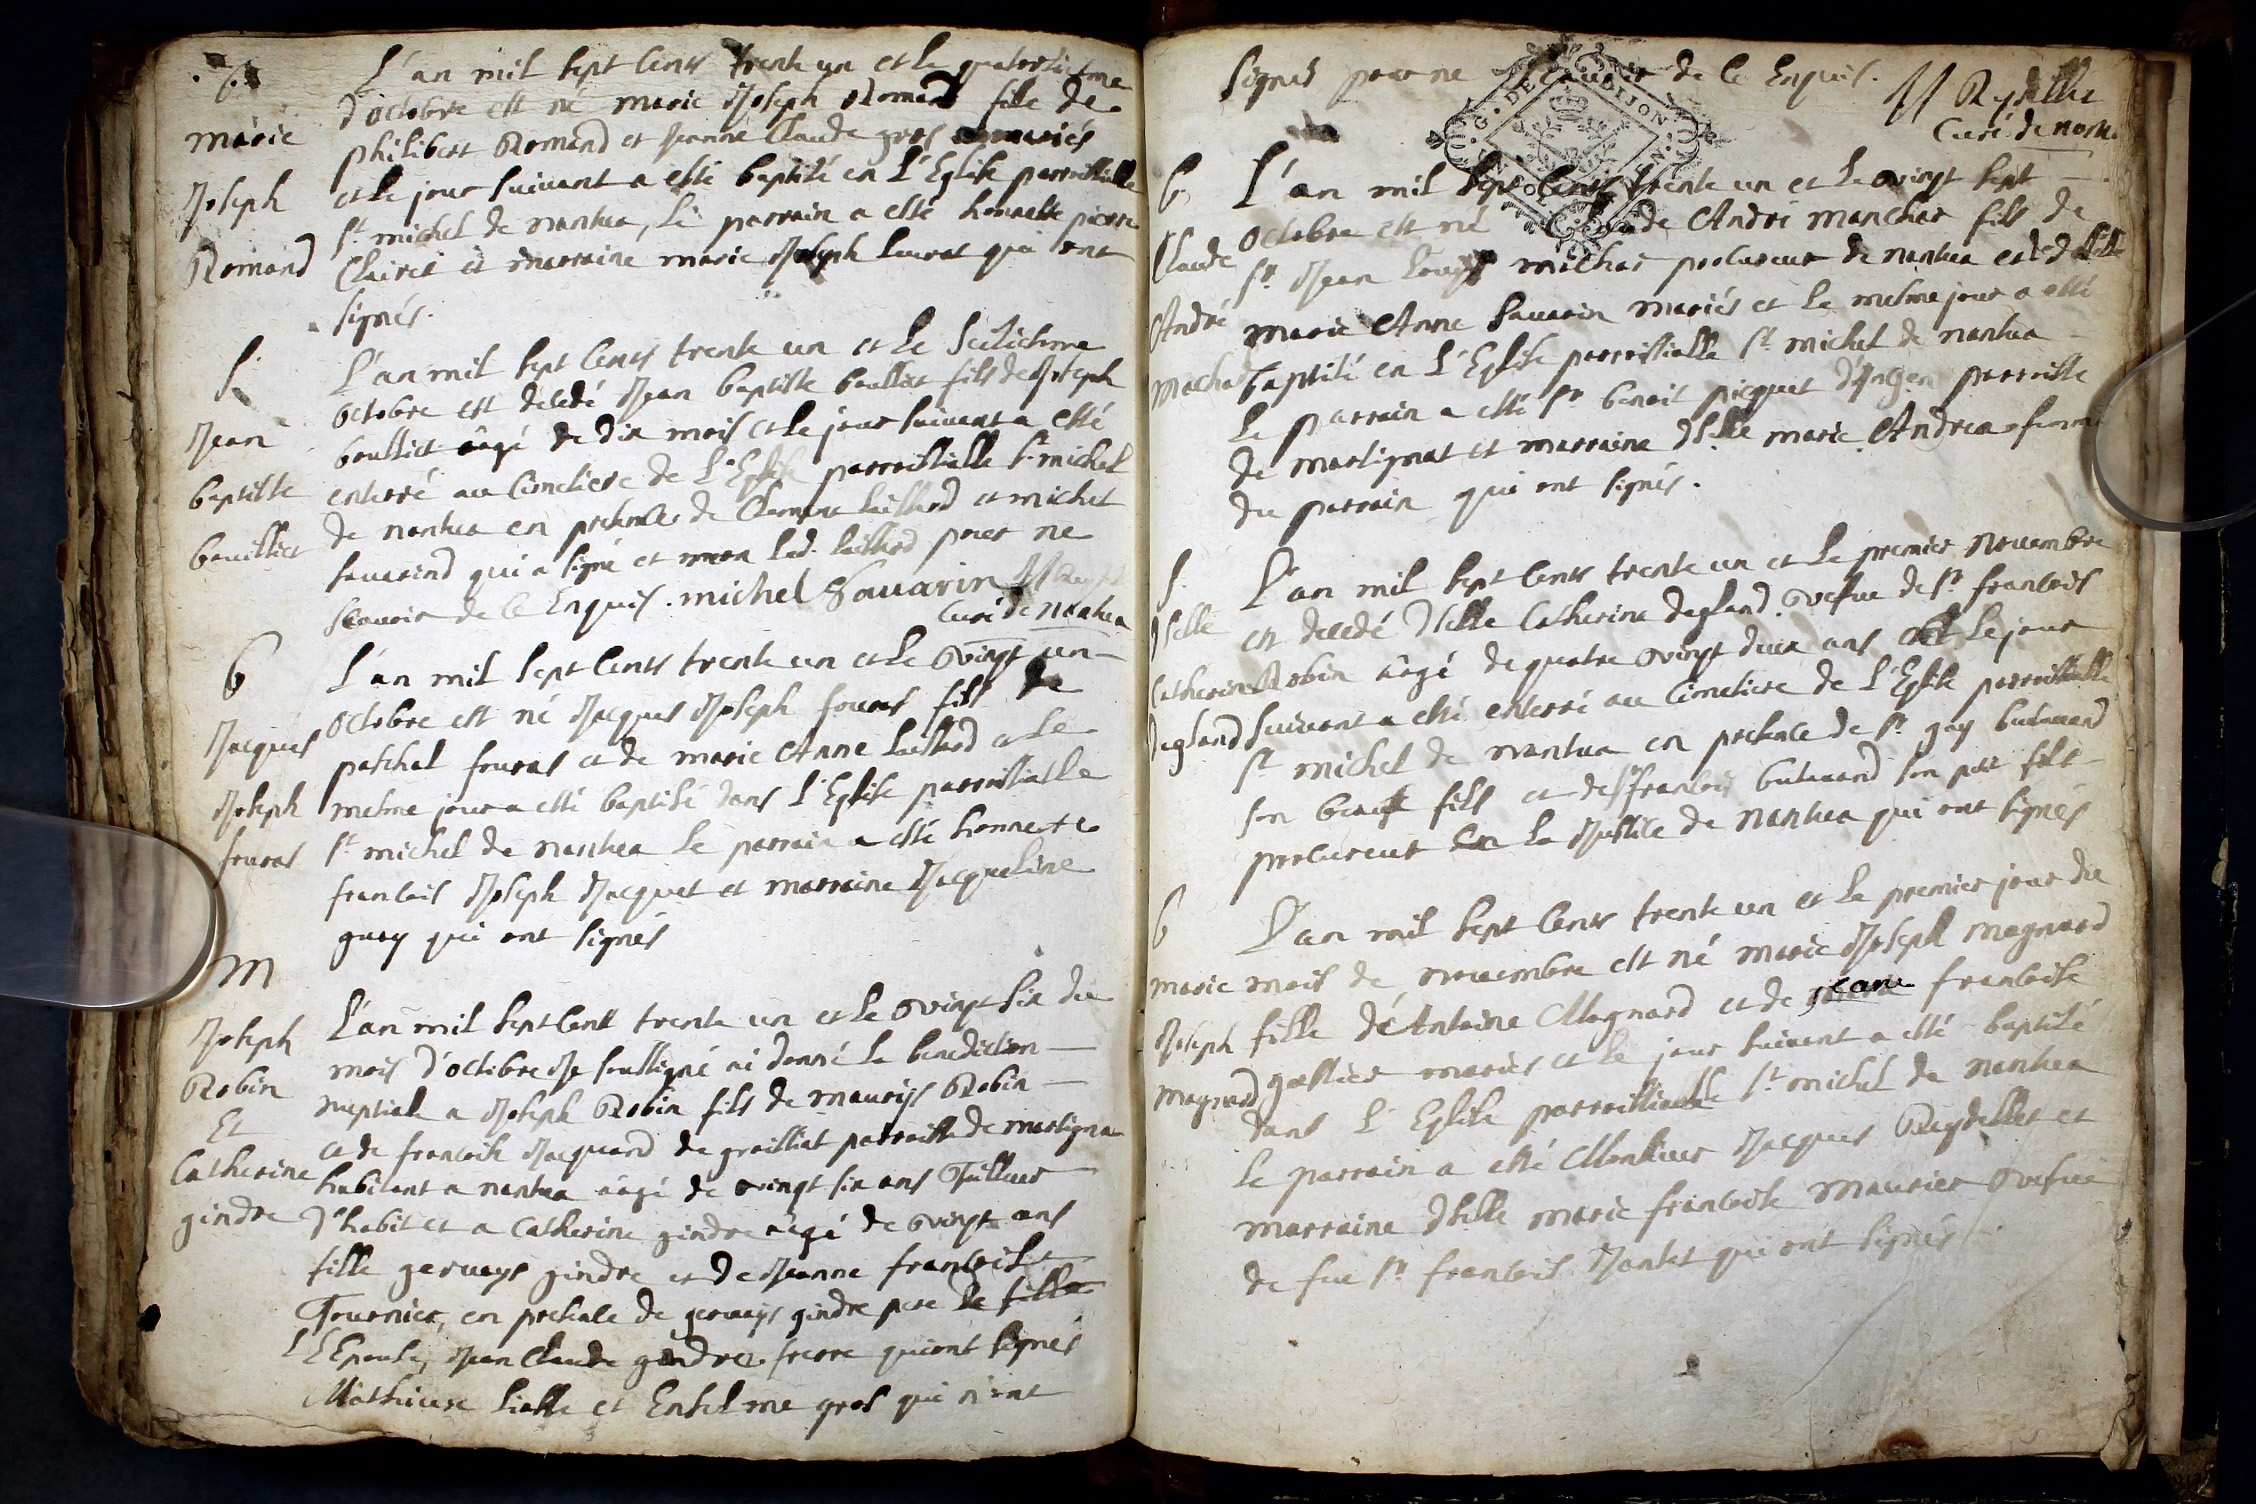 b
marie
Joseph
Romand
L'an mil sept cents trente un et le quatorsiesme
d'octobre est né marie Joseph Romand fille de
philibert Romand et Jeanne Claude gros mariés
et le jour suivant a esté baptisé en L'Eglise parroissialle
st michel de nantua, le parrain a esté honneste pierre
Clairet et marraine marie Joseph Luurat qui ont
signés.
S.
Jean
baptiste
bouillet
L'an mil sept cents trente un et le seiziesme
octobre est decedé Jean baptiste boullet fils de Joseph
boulliet âagé de dix mois et le jour suivant a esté
enterré au cimetiere de L'Eglise parroissialle st michel
de nantua en presence de Claude luillard et michel
sauarind qui a signé et non led. luillard pour ne
scauoir de ce Enquis. michel Sauarin
Curé de nantua
b
Jacques
Joseph
fouras
L'an mil sept cents trente un et le vingt un
octobre est né Jacques Joseph fouras fils de
paschal fouras et de marie Anne luillard et le
mesme jour a esté baptisé dans L'Eglise parroissialle
st michel de nantua le parrain a esté honneste
francois Joseph Jacquet et marraine Jacqueline
guey qui ont signés
M
Joseph
Robin
Et
Catherine
gindre
L'an mil sept cent trente un et le vingt six du
mois d'octobre Je soussigné ai donné la benediction
nuptiale a Joseph Robin fils de mauris Robin
et de francoise Jacquand de grailliat parroisse de martigna
habitant a nantua âagé de vingt six ans Tailleur
d'habit et a Catherine gindre âagé de vingt ans
fille geruays gindre et de Jeanne francoise
Tournier, en presence de geruays gindre pere de fille
L'Epouse, Jean Claude gindre frere qui ont signés
Mathieu sialle et Enselme gros qui n'ont
signés pour ne scauoir de ce Enquis.
JJ Reydellet
Curé de nantua
G. DE DIJON
b
Claude
André
Machar
L'an mil sept cents trente un et le vingt sept
octobre est né Claude André manchar fils de
sr Jean Louys michar procureur de nantua et de dlle
marie Anne sauarin mariés et le mesme jour a esté
baptisé en L'Eglise parroissialle st michel de nantua
le parrain a esté sr benoit picquet d'Angen parroisse
de martignat et marraine dlle marie Andrea femme
du parrain qui ont signés.
S.
dselle
Catherine
degland
L'an mil sept cents trente un et le premier novembre
est decedé dselle Catherine degland vefue de sr francois
Robin âagé de quatre vingt deux ans et le jour
suivant a esté enterré au cimetiere de L'Eglise parroissialle
st michel de nantua en presence de sr guy butauand
son beaux fils et de sr francois butauand son petit fils
procureur En la Justice de nantua qui ont signés
b
marie
Joseph
magnard
L'an mil sept cents trente un et le premier jour du
mois de novembre est né marie Joseph magnard
fille d'Antoine Magnard et de jeane francoise
goestier mariés et le jour suivant a esté baptisé
dans L'Eglise parroissialle st michel de nantua
le parrain a esté Monsieur Jacques Reydellet et
marraine dselle marie francoise maurier vefue
de feu sr francois Jantet qui ont signés